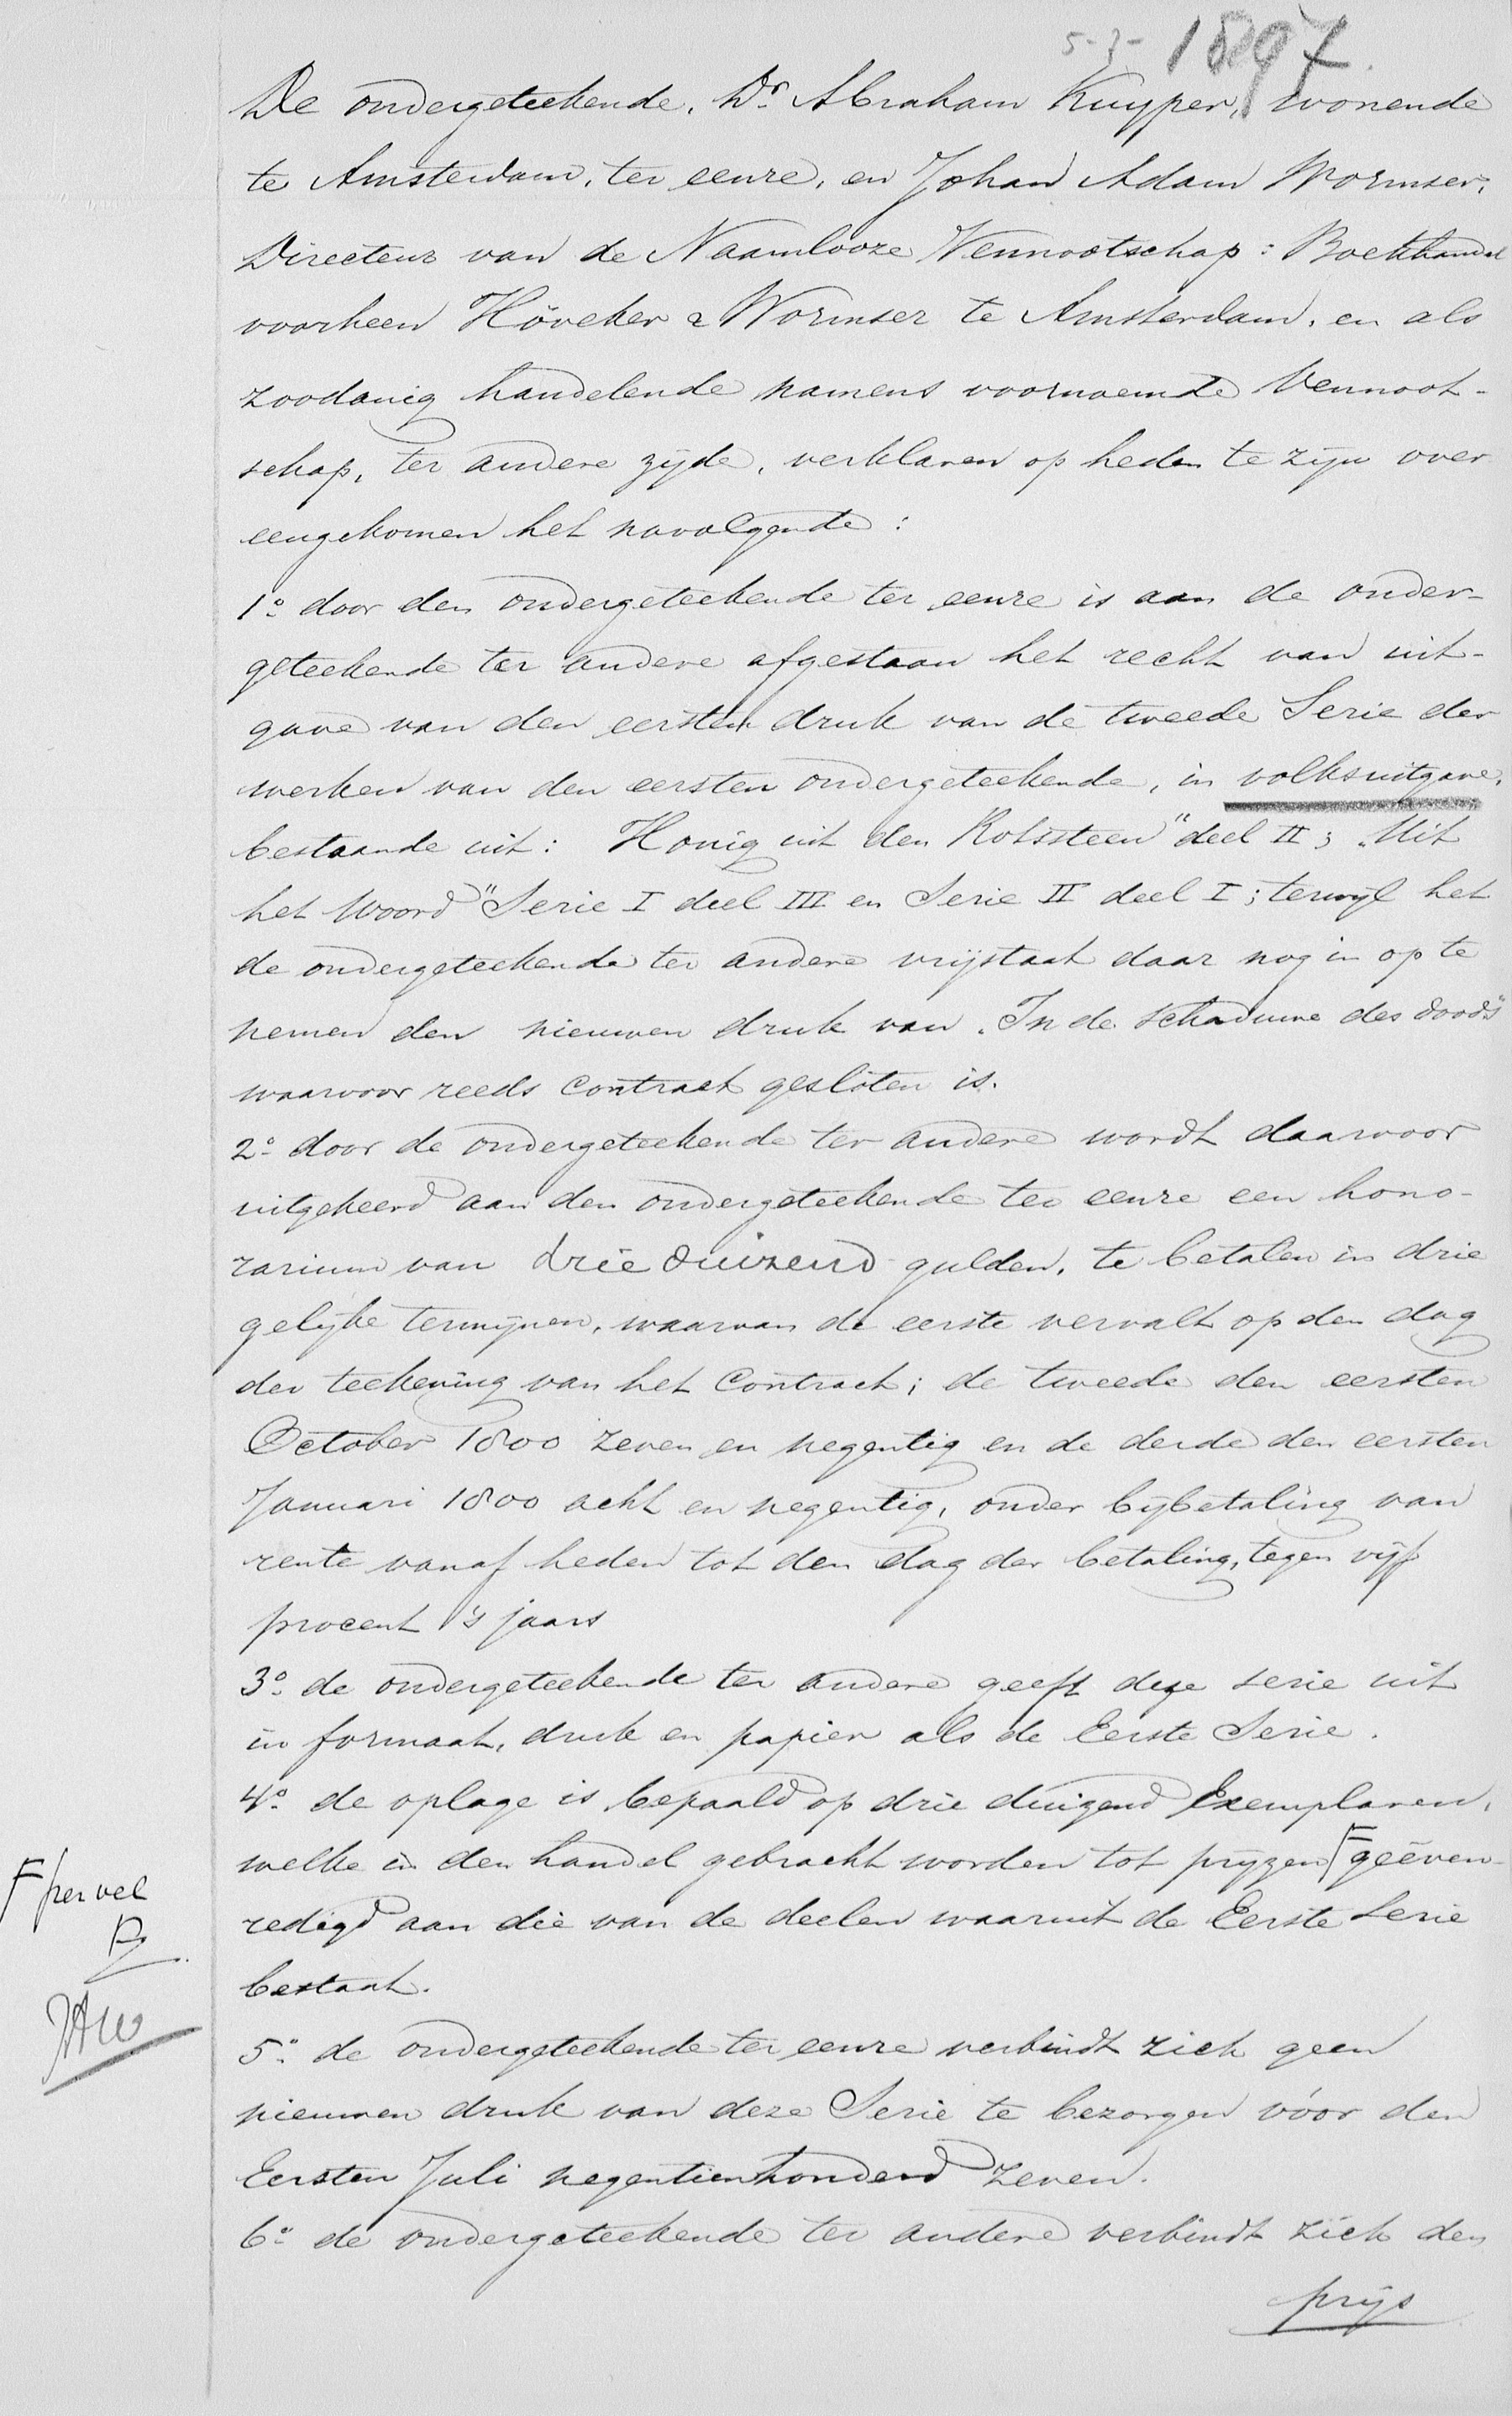 5-3-1897.
De ondergeteekende, Dr. Abraham Kuyper, wonende
te Amsterdam, ter eenre, en Johan Adam Wormser,
Directeur van de Naamlooze Vennootschap: Boekhandel
voorheen Höveker & Wormser te Amsterdam, en als
zoodanig handelende namens voornoemde Vennoot-
schap, ter andere zijde, verklaren op heden te zijn over
eengekomen het navolgende:
1o. door den ondergeteekende ter eenre is aan de onder-
geteekende ter andere afgestaan het recht van uit-
gave van den eersten druk van de tweede Serie der
werken van den eersten ondergeteekende, in volksuitgave,
bestaande uit: Honig uit den Rotssteen" deel II; „Uit
het Woord" Serie I deel III en Serie II deel I; terwijl het
de ondergeteekende ter andere vrijstaat daar nog in op te
nemen den nieuwen druk van „In de schaduwe des doods"
waarvoor reeds contract gesloten is.
2o. door de ondergeteekende ter andere wordt daarvoor
uitgekeerd aan den ondergeteekende ter eenre een hono-
rarium van drie duizend gulden, te betalen in drie
gelijke termijnen, waarvan de eerste vervalt op den dag
der teekening van het Contract; de tweede den eersten
October 1800 zeven en negentig en de derde den eersten
Januari 1800 acht en negentig, onder bijbetaling van
rente vanaf heden tot den dag der betaling, tegen vijf
procent 's jaars
3o. de ondergeteekende ter andere geeft deze serie uit
in formaat, druk en papier als de Eerste Serie.
4o. de oplage is bepaald op drie duizend Exemplaren,
welke in den handel gebracht worden tot prijzen F geëven-
redigd aan die van de deelen waaruit de Eerste Serie
bestaat.
F per vel
JAW
5o. de ondergeteekende ter eenre verbindt zich geen
nieuwen druk van deze Serie te bezorgen vóór den
Eersten Juli negentienhonderd zeven.
6o. de ondergeteekende ter andere verbindt zich den
prijs